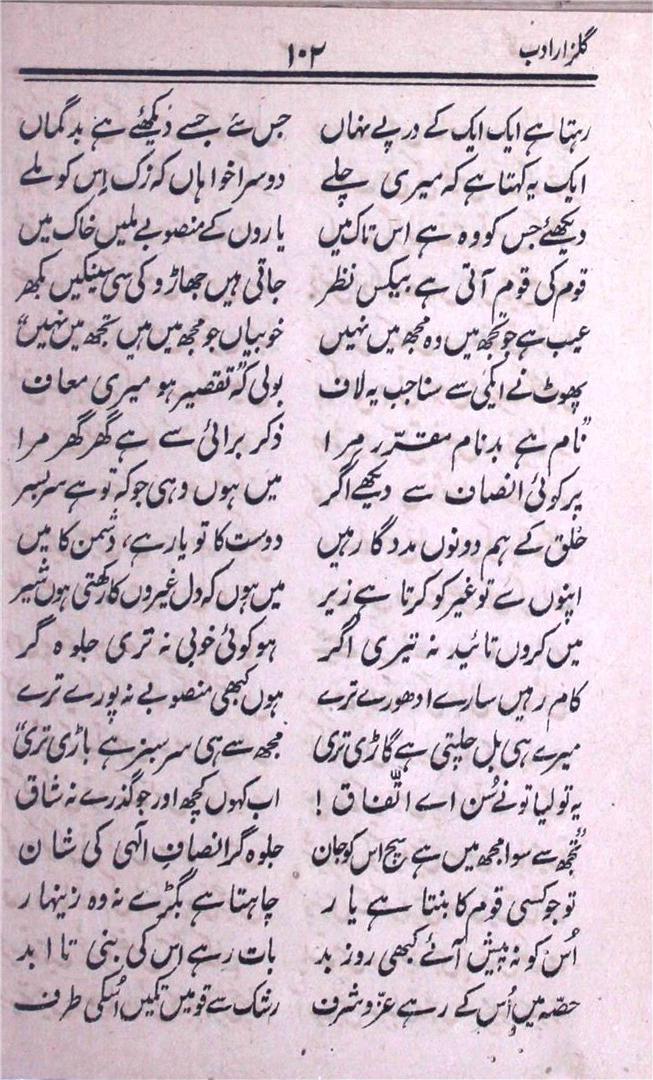 گلزار ادب
۱۰۲
رہتا ہے ایک ایک کے درپے نہاں جس سے جسے دیکھئے ہے بدگماں
ایک یہ کہتا ہے کہ میری چلے دوسرا خواہاں کہ زک اِس کو ملے
دیکھئے جس کو وہ ہے اس تاک میں یاروں کے منصوبے ملیں خاک میں
قوم کی قوم آتی ہے بیکس نظر جاتی ہیں جھاڑو کی سی سینکیں بکھر
عیب ہے جو تجھ میں وہ مجھ میں نہیں خوبیاں جو مجھ میں ہیں تجھ میں نہیں"
پھوٹ نے ایکی سے سنا جب یہ لاف بولی کہ "تقصیر ہو میری معاف
"نام ہے بدنام مقدّر مرا ذکر برائی سے ہے گھر گھر مرا
پر کوئی انصاف سے دیکھے اگر میں ہوں وہی جو کہ تو ہے سربسر
خلق کے ہم دونوں مددگار ہیں دوست کا تو یار ہے، دُشمن کا میں
اپنوں سے تو غیر کو کرتا ہے زیر میں ہوں کہ دل غیروں کا رکھتی ہوں شیر
میں کروں تائید نہ تیری اگر ہو کوئی خوبی نہ تری جلوہ گر
کام رہیں سارے ادھورے ترے ہوں کبھی منصوبے نہ پورے ترے
میرے ہی بل چلتی ہے گاڑی تری مجھ سے ہی سرسبز ہے باڑی تری"
یہ تو لیا تو نے سُن اے اتّفاق ! اب کہوں کچھ اور جو گذرے نہ شاق
"تجھ سے سوا مجھ میں ہے سچ اس کو جان جلوہ گر انصافِ الٰہی کی شان
تو جو کسی قوم کا بنتا ہے یار چاہتا ہے بگڑے نہ وہ زینہار
اُس کو نہ پیش آئے کبھی روز بد بات رہے اِس کی بنی تا ابد
حصّہ میں اُس کے رہے عزّ و شرف رشک سے قومیں تکیں اُسکی طرف